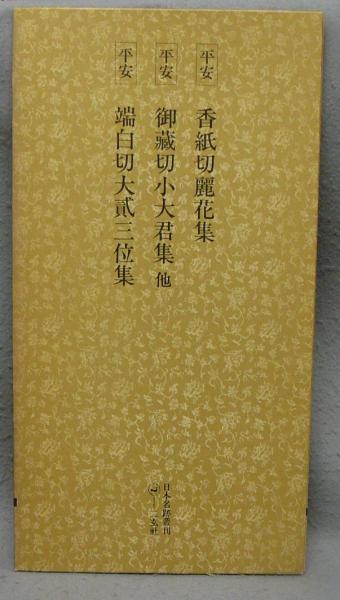 平安 香紙切麗花集
平安 御藏切小大君集 他
平安 端白切大貳三位集
日本名跡叢刊
二玄社